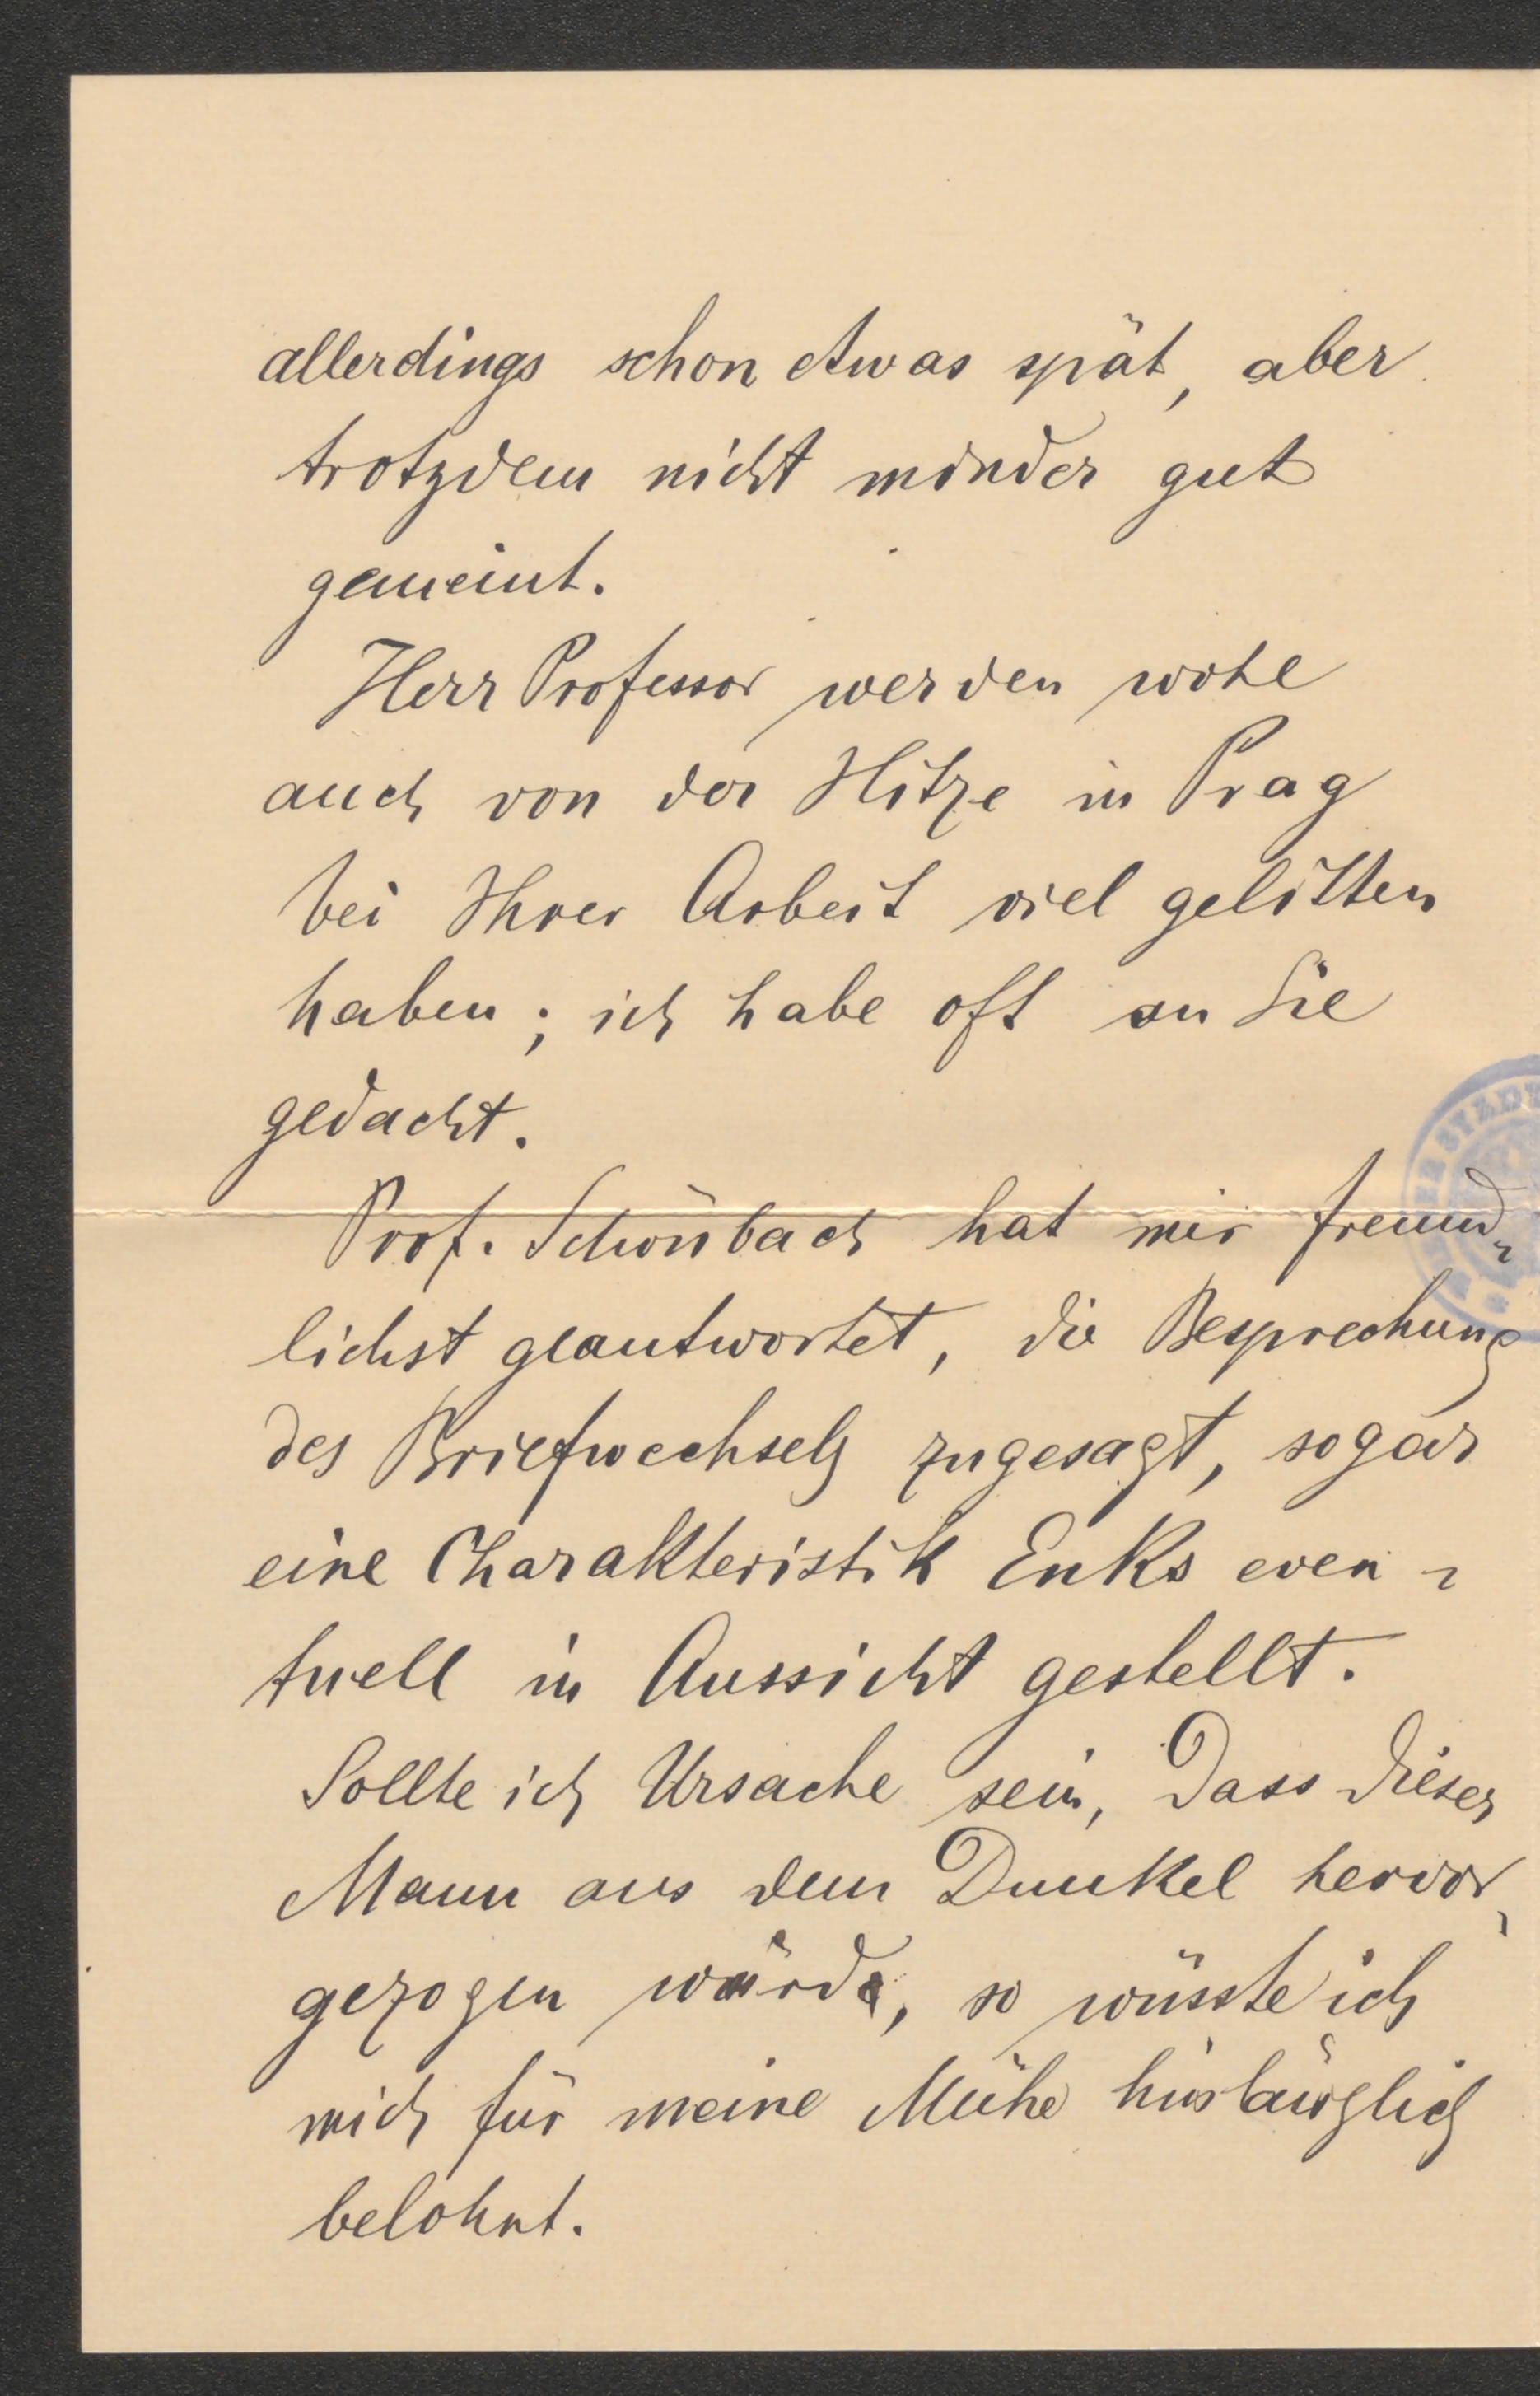 allerdings schon etwas spät, aber
trotzdem nicht minder gut
gemeint.
Herr Professor werden wohl
auch von der Hitze in Prag
bei Ihrer Arbeit viel gelitten
haben; ich habe oft an Sie
gedacht.
Prof. Schönbach hat mir freund-
lichst geantwortet, die Besprechung
des Briefwechsels zugesagt, sogar
eine Charakteristik Enks even-
tuell in Aussicht gestellt.
Sollte ich Ursache sein, dass dieser
Mann aus dem Dunkel hervor-
gezogen würde, so wüsste ich
mich für meine Mühe hinlänglich
belohnt.